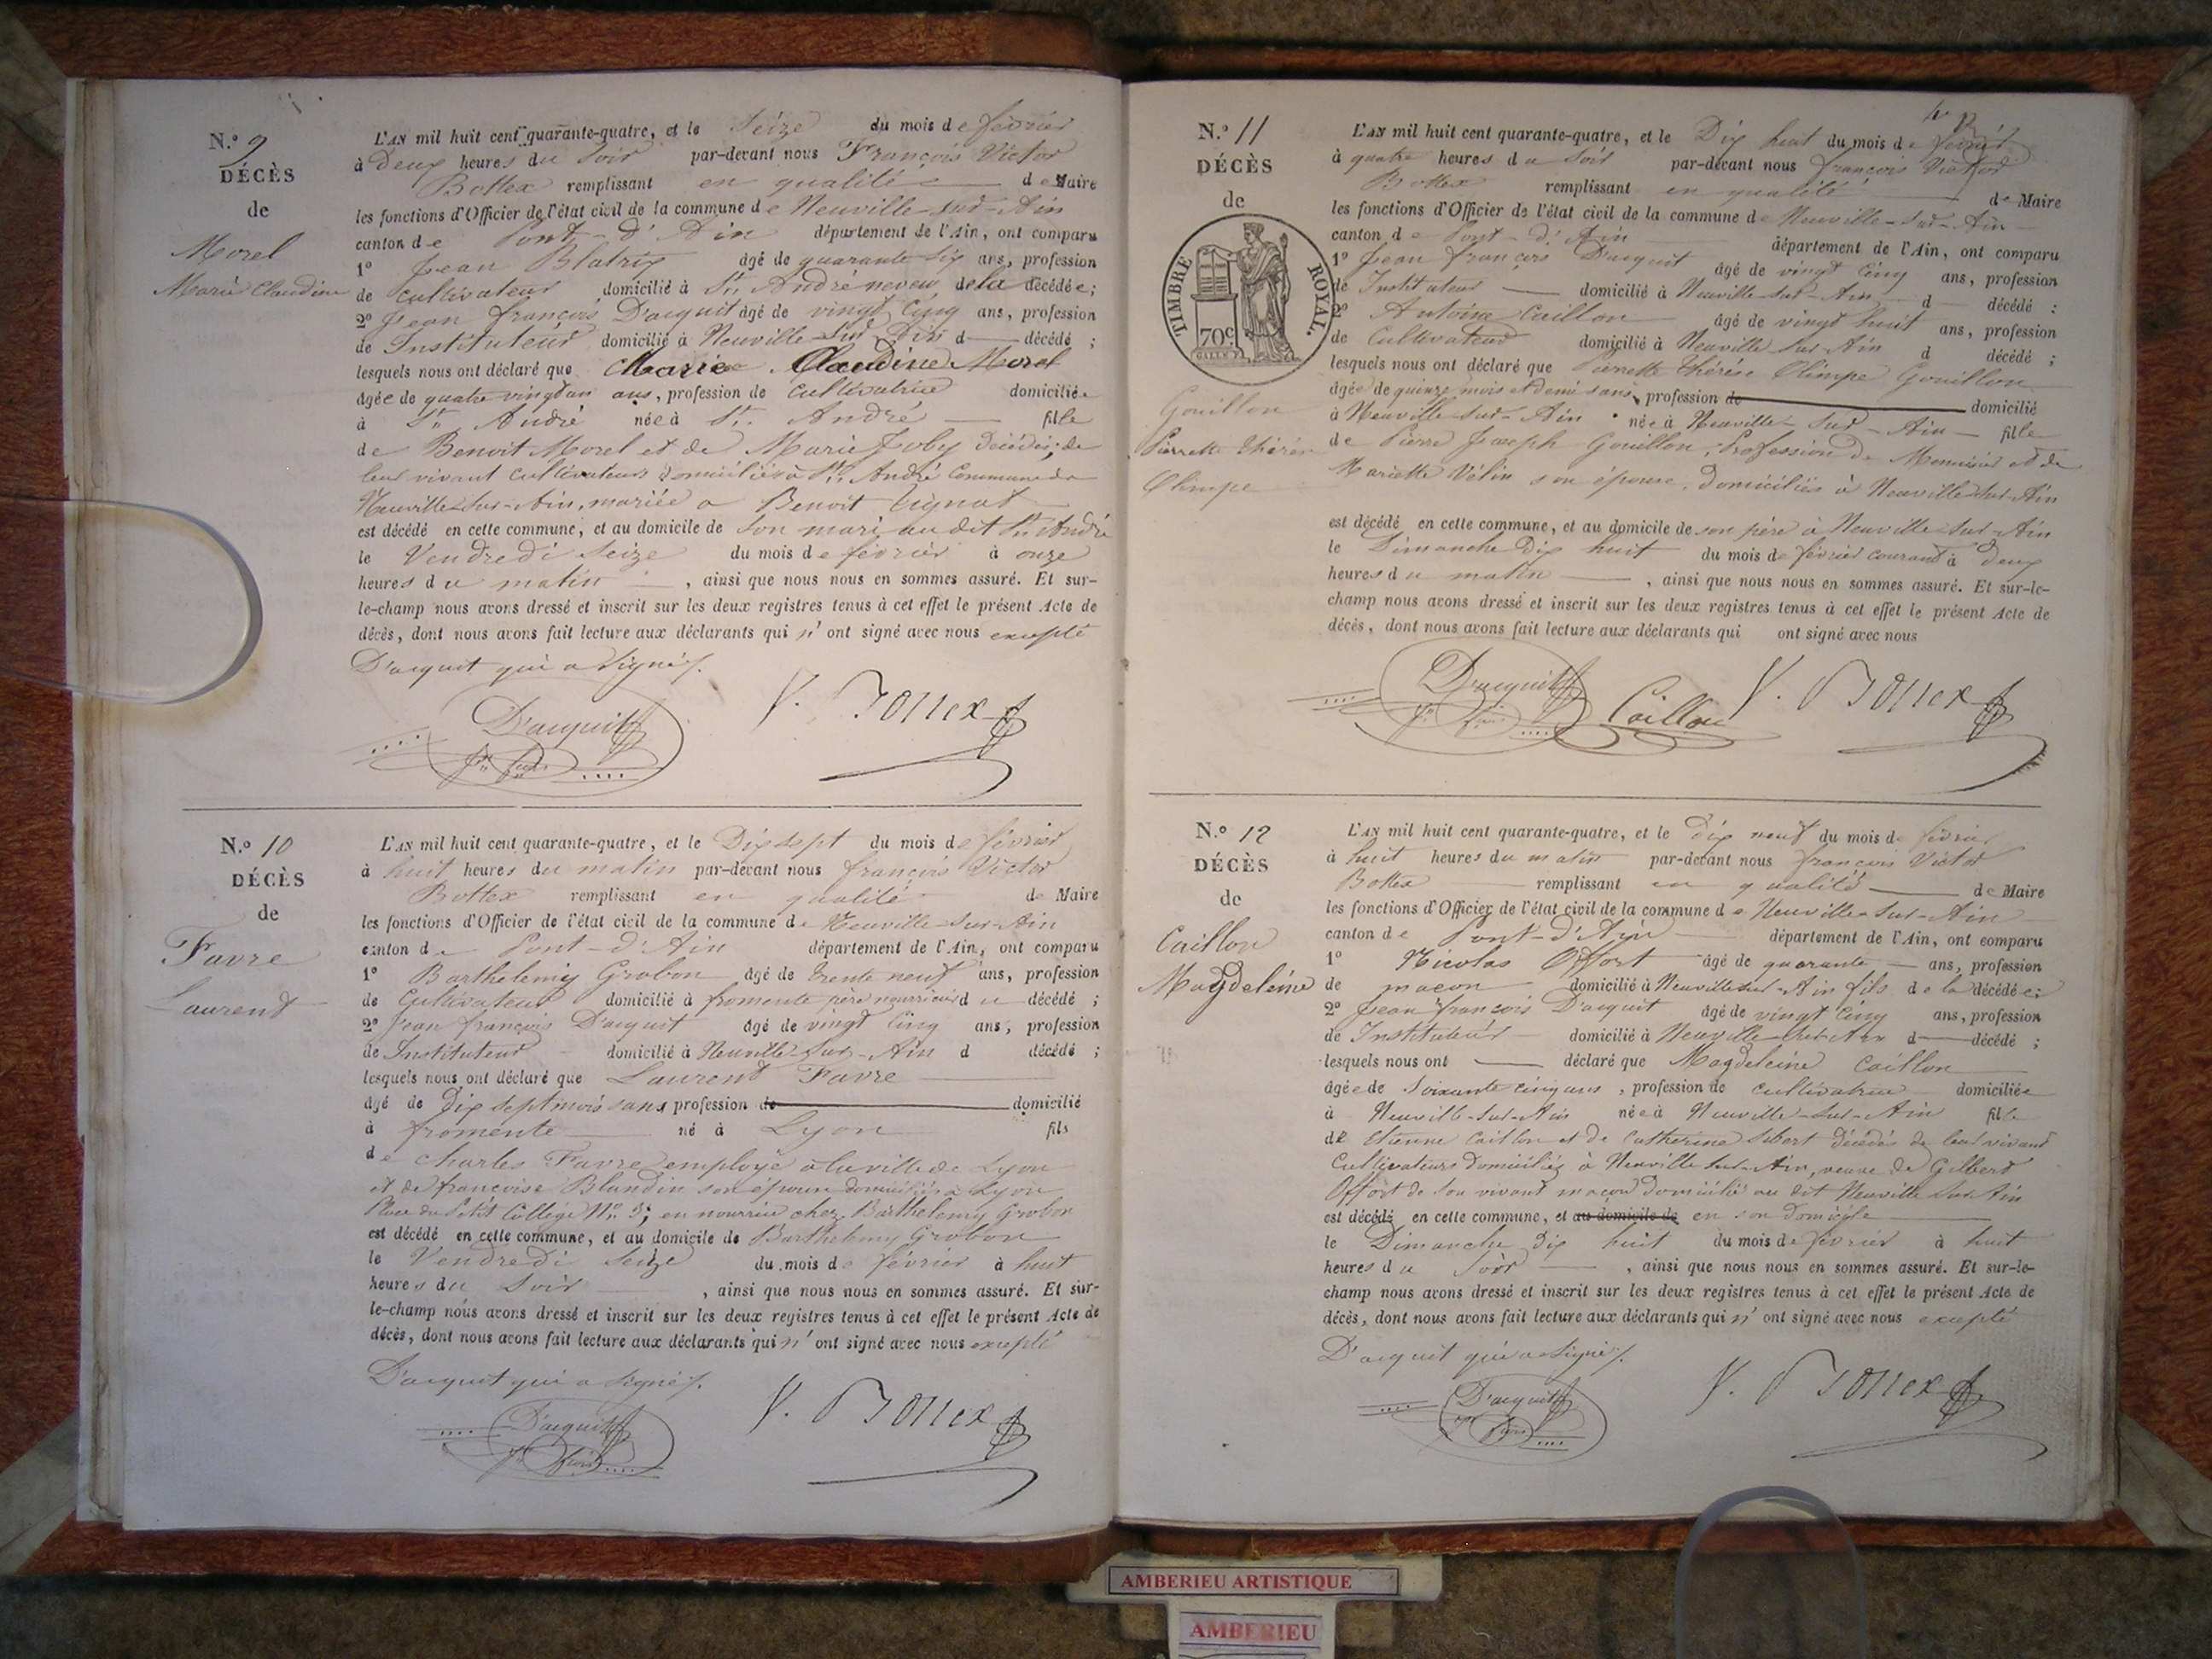 N.º 9
DÉCÈS
de
Morel
Marie Claudine
L'AN mil huit cent quarante-quatre, et le Seize du mois de février
à Deux heures du Soir par-devant nous François Victor
Bottex remplissant en qualité de Maire
les fonctions d'Officier de l'état civil de la commune de Neuville-sur-Ain
canton de Pont-d'Ain département de l'Ain, ont comparu
1º Jean Blatrix âgé de quarante six ans, profession
de cultivateur domicilié à St. André neveu de la décédée;
2º Jean françois D'acquit âgé de vingt cinq ans, profession
de Instituteur domicilié à Neuville-sur-Ain d décédé ;
lesquels nous ont déclaré que Marie Claudine Morel
âgée de quatre vingt un ans, profession de cultivatrice domiciliée
à St. André née à St. André fille
de Benoit Morel et de Marie Joly décédés; de
leur vivant cultivateurs domiciliés à St. André Commune de
Neuville-sur-Ain, mariée a Benoit
est décédé en cette commune, et au domicile de son mari au dit St. André
le Vendredi seize du mois de février à onze
heures du matin , ainsi que nous nous en sommes assuré. Et sur-
le-champ nous avons dressé et inscrit sur les deux registres tenus à cet effet le présent Acte de
décès, dont nous avons fait lecture aux déclarants qui n'ont signé avec nous excepté
D'acquit qui a signé.
D'acquit
V. Bottex
N.º 10
DÉCÈS
de
Favre
Laurent
L'AN mil huit cent quarante-quatre, et le Dix sept du mois de février
à huit heures du matin par-devant nous françois Victor
Bottex remplissant en qualité de Maire
les fonctions d'Officier de l'état civil de la commune de Neuville-sur-Ain
canton de Pont-d'Ain département de l'Ain, ont comparu
1º Barthelemy Grobon âgé de trente neuf ans, profession
de Cultivateur domicilié à fromente père nourricier du décédé ;
2º Jean françois D'acquit âgé de vingt cinq ans, profession
de Instituteur domicilié à Neuville-sur-Ain d décédé ;
lesquels nous ont déclaré que Laurent Favre
âgé de Dix sept mois sans profession de domicilié
à fromente né à Lyon fils
de Charles Favre employé à la ville de Lyon
et de françoise Blandin son épouse domiciliés à Lyon
Place du Petit Collège Nº. 3; en nourrice chez Barthelemy Grobon
est décédé en cette commune, et au domicile de Barthelemy Grobon
le Vendredi seize du mois de février à huit
heures du soir , ainsi que nous nous en sommes assuré. Et sur-
le-champ nous avons dressé et inscrit sur les deux registres tenus à cet effet le présent Acte de
décès, dont nous avons fait lecture aux déclarants qui n'ont signé avec nous excepté
D'acquit qui a signé.
D'acquit
V. Bottex
N.º 11
DÉCÈS
de
TIMBRE ROYAL.
70c
Gouillon
Pierrette thérèse
Olimpe
L'AN mil huit cent quarante-quatre, et le Dix huit du mois de février
à quatre heures du soir par-devant nous françois Victor
Bottex remplissant en qualité de Maire
les fonctions d'Officier de l'état civil de la commune de Neuville-sur-Ain
canton de Pont-d'Ain département de l'Ain, ont comparu
1º Jean françois D'acquit âgé de vingt cinq ans, profession
de Instituteur domicilié à Neuville-sur-Ain d décédé ;
2º Antoine Caillon âgé de vingt huit ans, profession
de Cultivateur domicilié à Neuville sur-Ain d décédé ;
lesquels nous ont déclaré que Pierrette thérèse Olimpe Gouillon
âgée de quinze mois et demi sans profession de domicilié
à Neuville-sur-Ain née à Neuville-sur-Ain fille
de Pierre Joseph Gouillon, Profession de Menuisier et de
Mariette Vélin son épouse, domiciliés à Neuville sur-Ain
est décédé en cette commune, et au domicile de son père à Neuville sur-Ain
le Dimanche dix huit du mois de février courant à deux
heures du matin , ainsi que nous nous en sommes assuré. Et sur-le-
champ nous avons dressé et inscrit sur les deux registres tenus à cet effet le présent Acte de
décès, dont nous avons fait lecture aux déclarants qui ont signé avec nous
D'acquit
Caillon
V. Bottex
N.º 12
DÉCÈS
de
Caillon
Magdeleine
L'AN mil huit cent quarante-quatre, et le dix neuf du mois de février
à huit heures du matin par-devant nous françois Victor
Bottex remplissant en qualité de Maire
les fonctions d'Officier de l'état civil de la commune de Neuville-sur-Ain
canton de Pont-d'Ain département de l'Ain, ont comparu
1º Nicolas Offort âgé de quarante ans, profession
de maçon domicilié à Neuville sur-Ain fils de la décédée;
2º Jean françois D'acquit âgé de vingt cinq ans, profession
de Instituteur domicilié à Neuville-sur-Ain d décédé ;
lesquels nous ont déclaré que Magdeleine Caillon
âgée de soixante cinq ans, profession de cultivatrice domiciliée
à Neuville-sur-Ain née à Neuville-sur-Ain fille
de Etienne Caillon et de Catherine Sibert décédés de leur vivant
Cultivateurs domiciliés à Neuville sur-Ain, veuve de Gilbert
Offort de son vivant maçon domicilié au dit Neuville sur Ain
est décédé en cette commune, et au domicile de en son domicile
le Dimanche dix huit du mois de février à huit
heures du soir , ainsi que nous nous en sommes assuré. Et sur-le-
champ nous avons dressé et inscrit sur les deux registres tenus à cet effet le présent Acte de
décès, dont nous avons fait lecture aux déclarants qui n'ont signé avec nous excepté
D'acquit qui a signé.
D'acquit
V. Bottex
AMBERIEU ARTISTIQUE
AMBERIEU